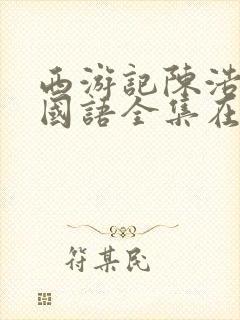 西游記陳浩
國語全集在
符某民